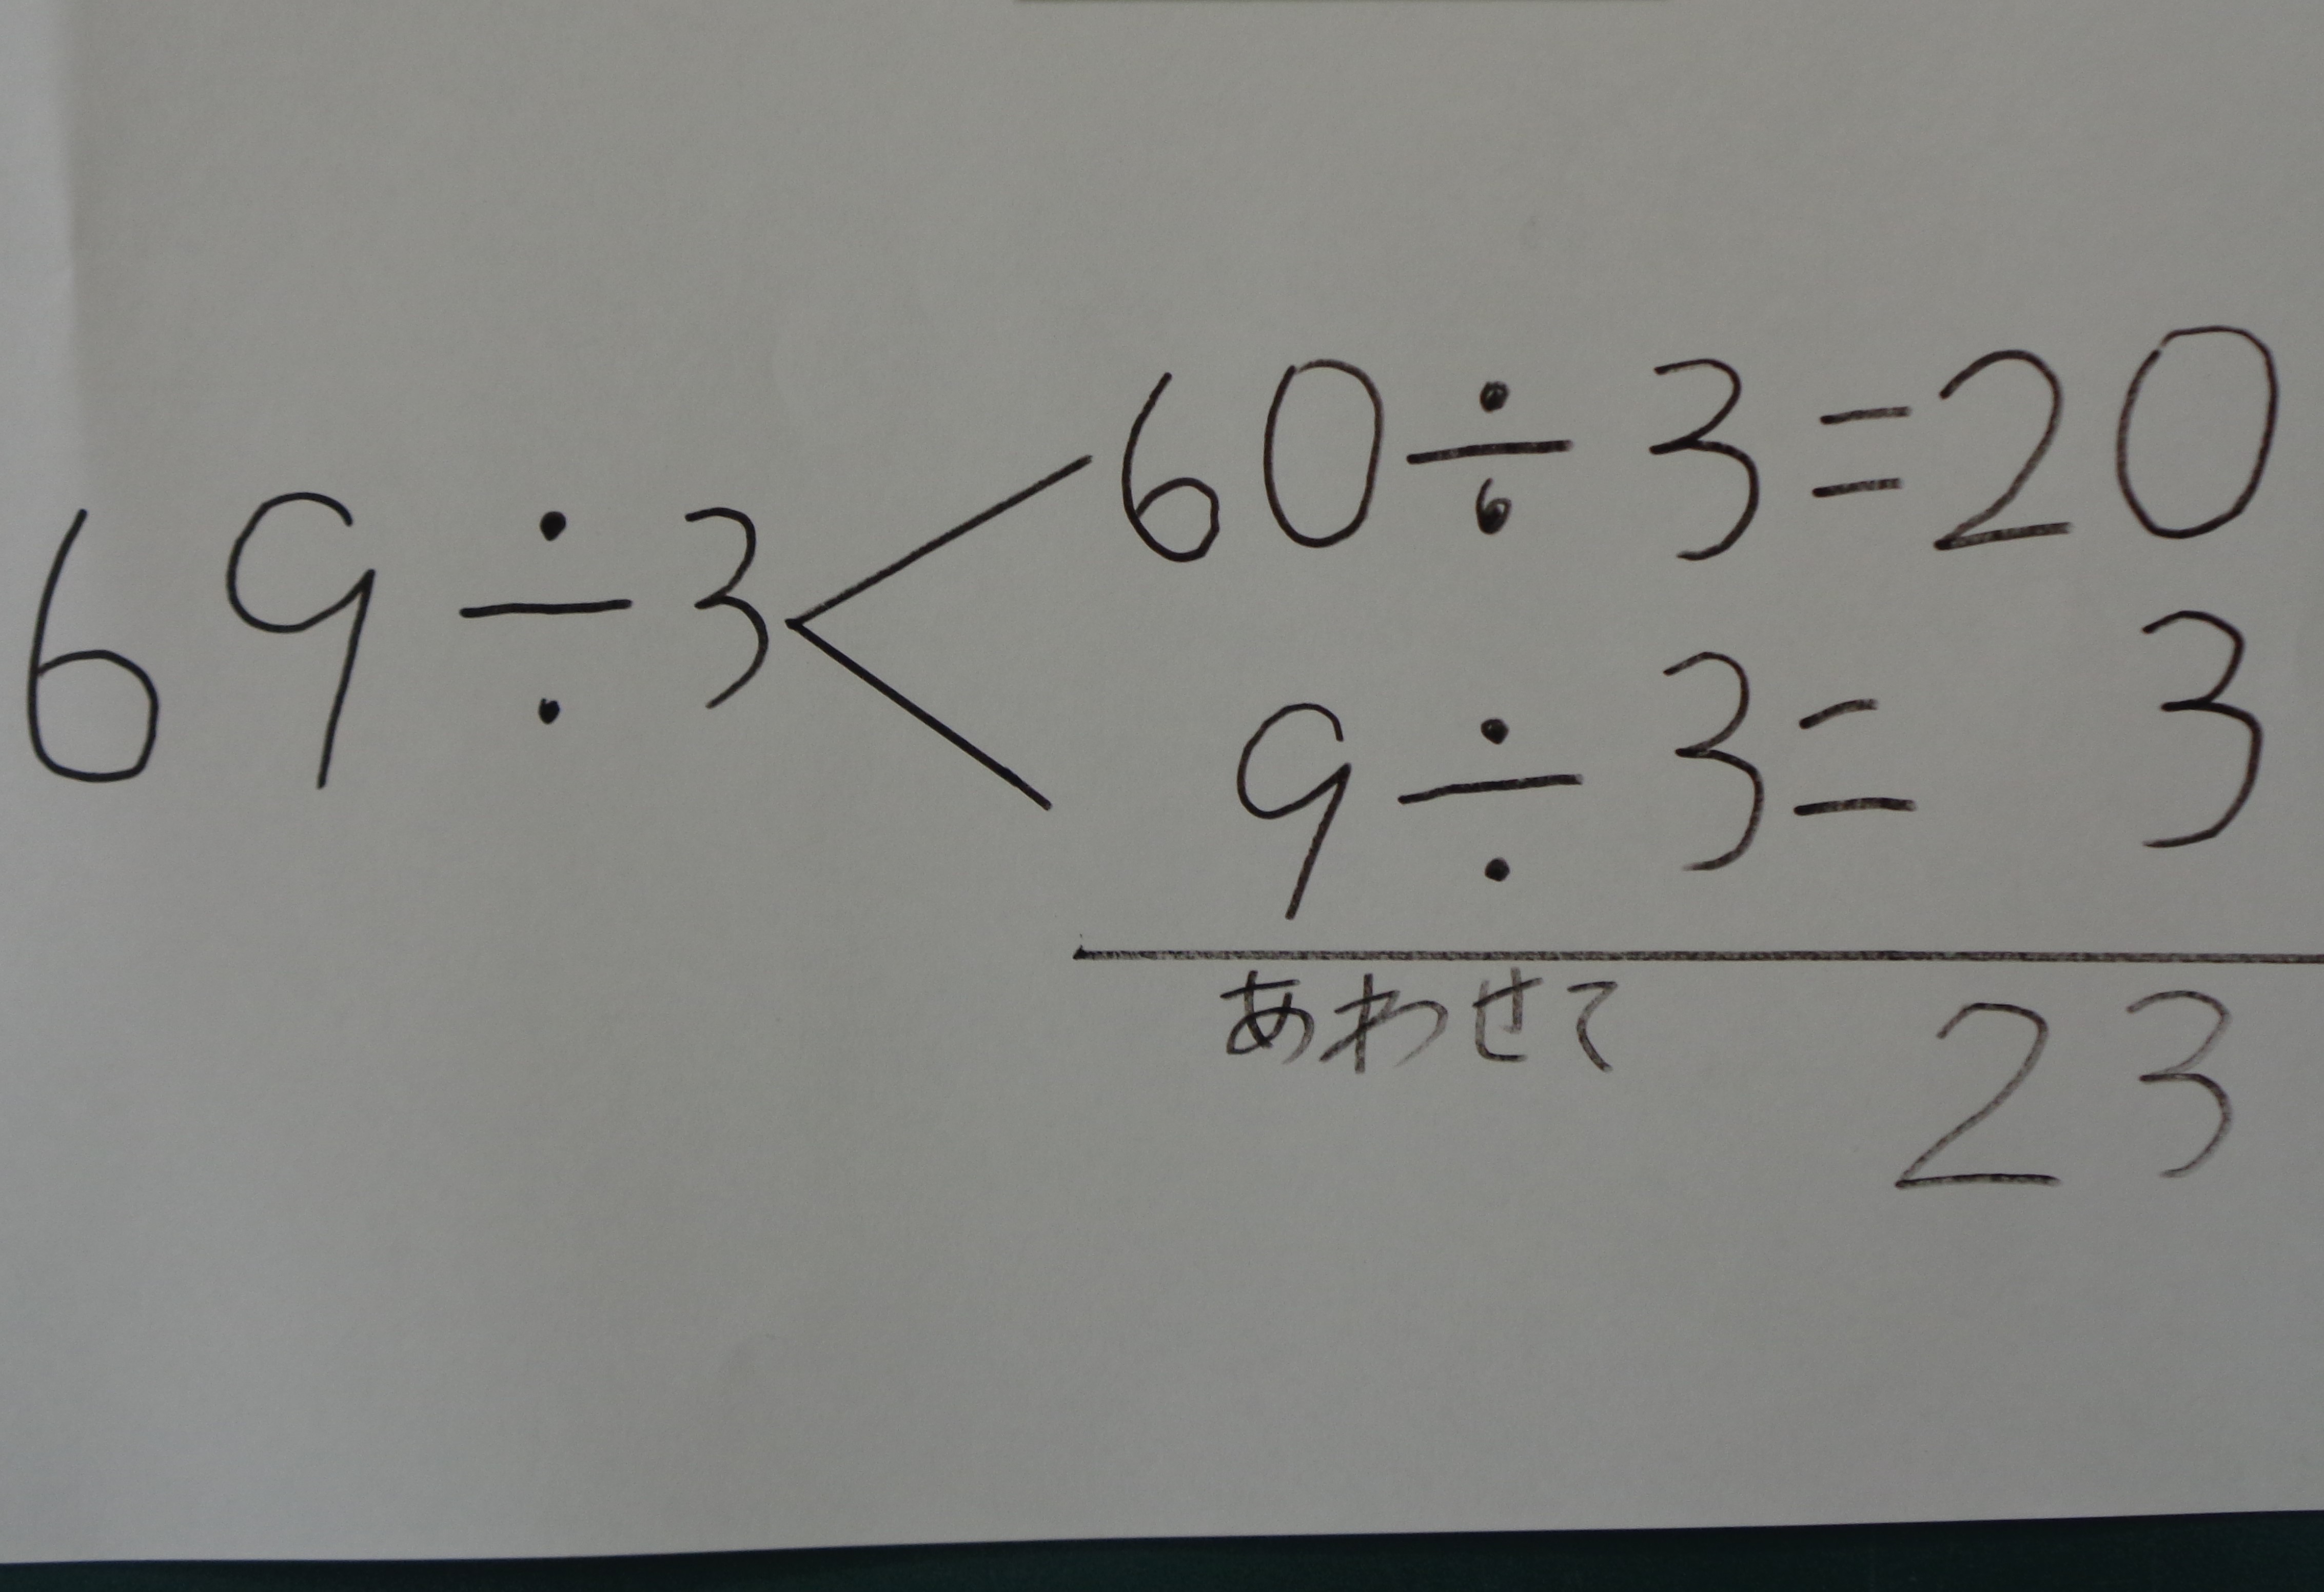 69÷3
60÷3=20
9÷3= 3
あわせて 23